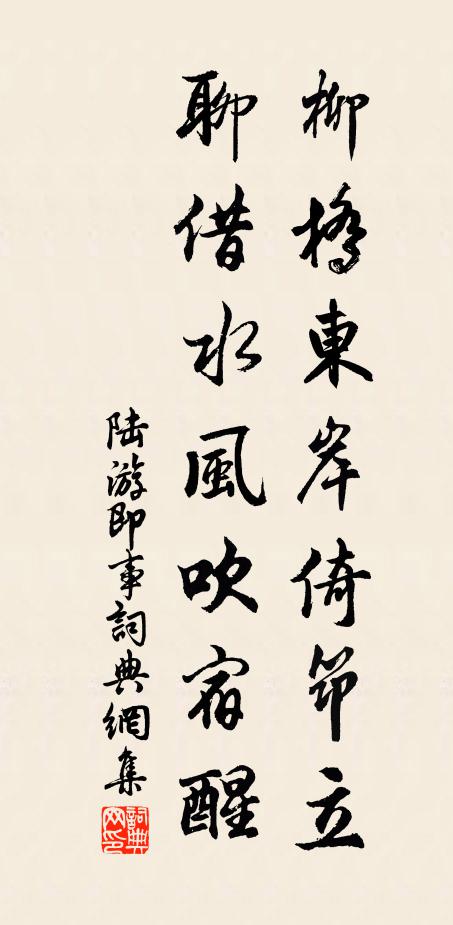 柳橋東岸倚筇立
聊借水風吹宿醒
陸游即事詞典網集
詞典网印